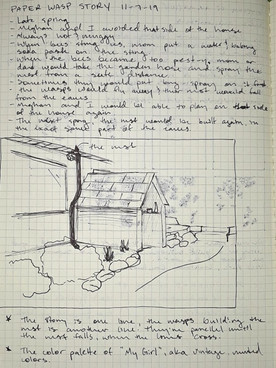 PAPER WASP STORY 11-7-19
- Late spring
- Meghan and I avoided that side of the house
- Always hot & muggy
- When bees stung us, mom put a water/baking
soda paste on the sting.
- When the bees became too pest-y, mom or
dad would take the garden hose and spray the
nest from a safe distance.
- Sometimes they would put bug spray on it
the wasps would fly away & the nest would fall
from the eaves
- Meghan and I would be able to play on that side
of the house again.
- The next spring, the nest would be built again in
the exact same part of the eaves.
the nest
* The story is one line, the wasps building the
nest is another line. They're parallel until
the nest falls, when the lines cross.
* The color palette of "My Girl", aka vintage, muted
colors.